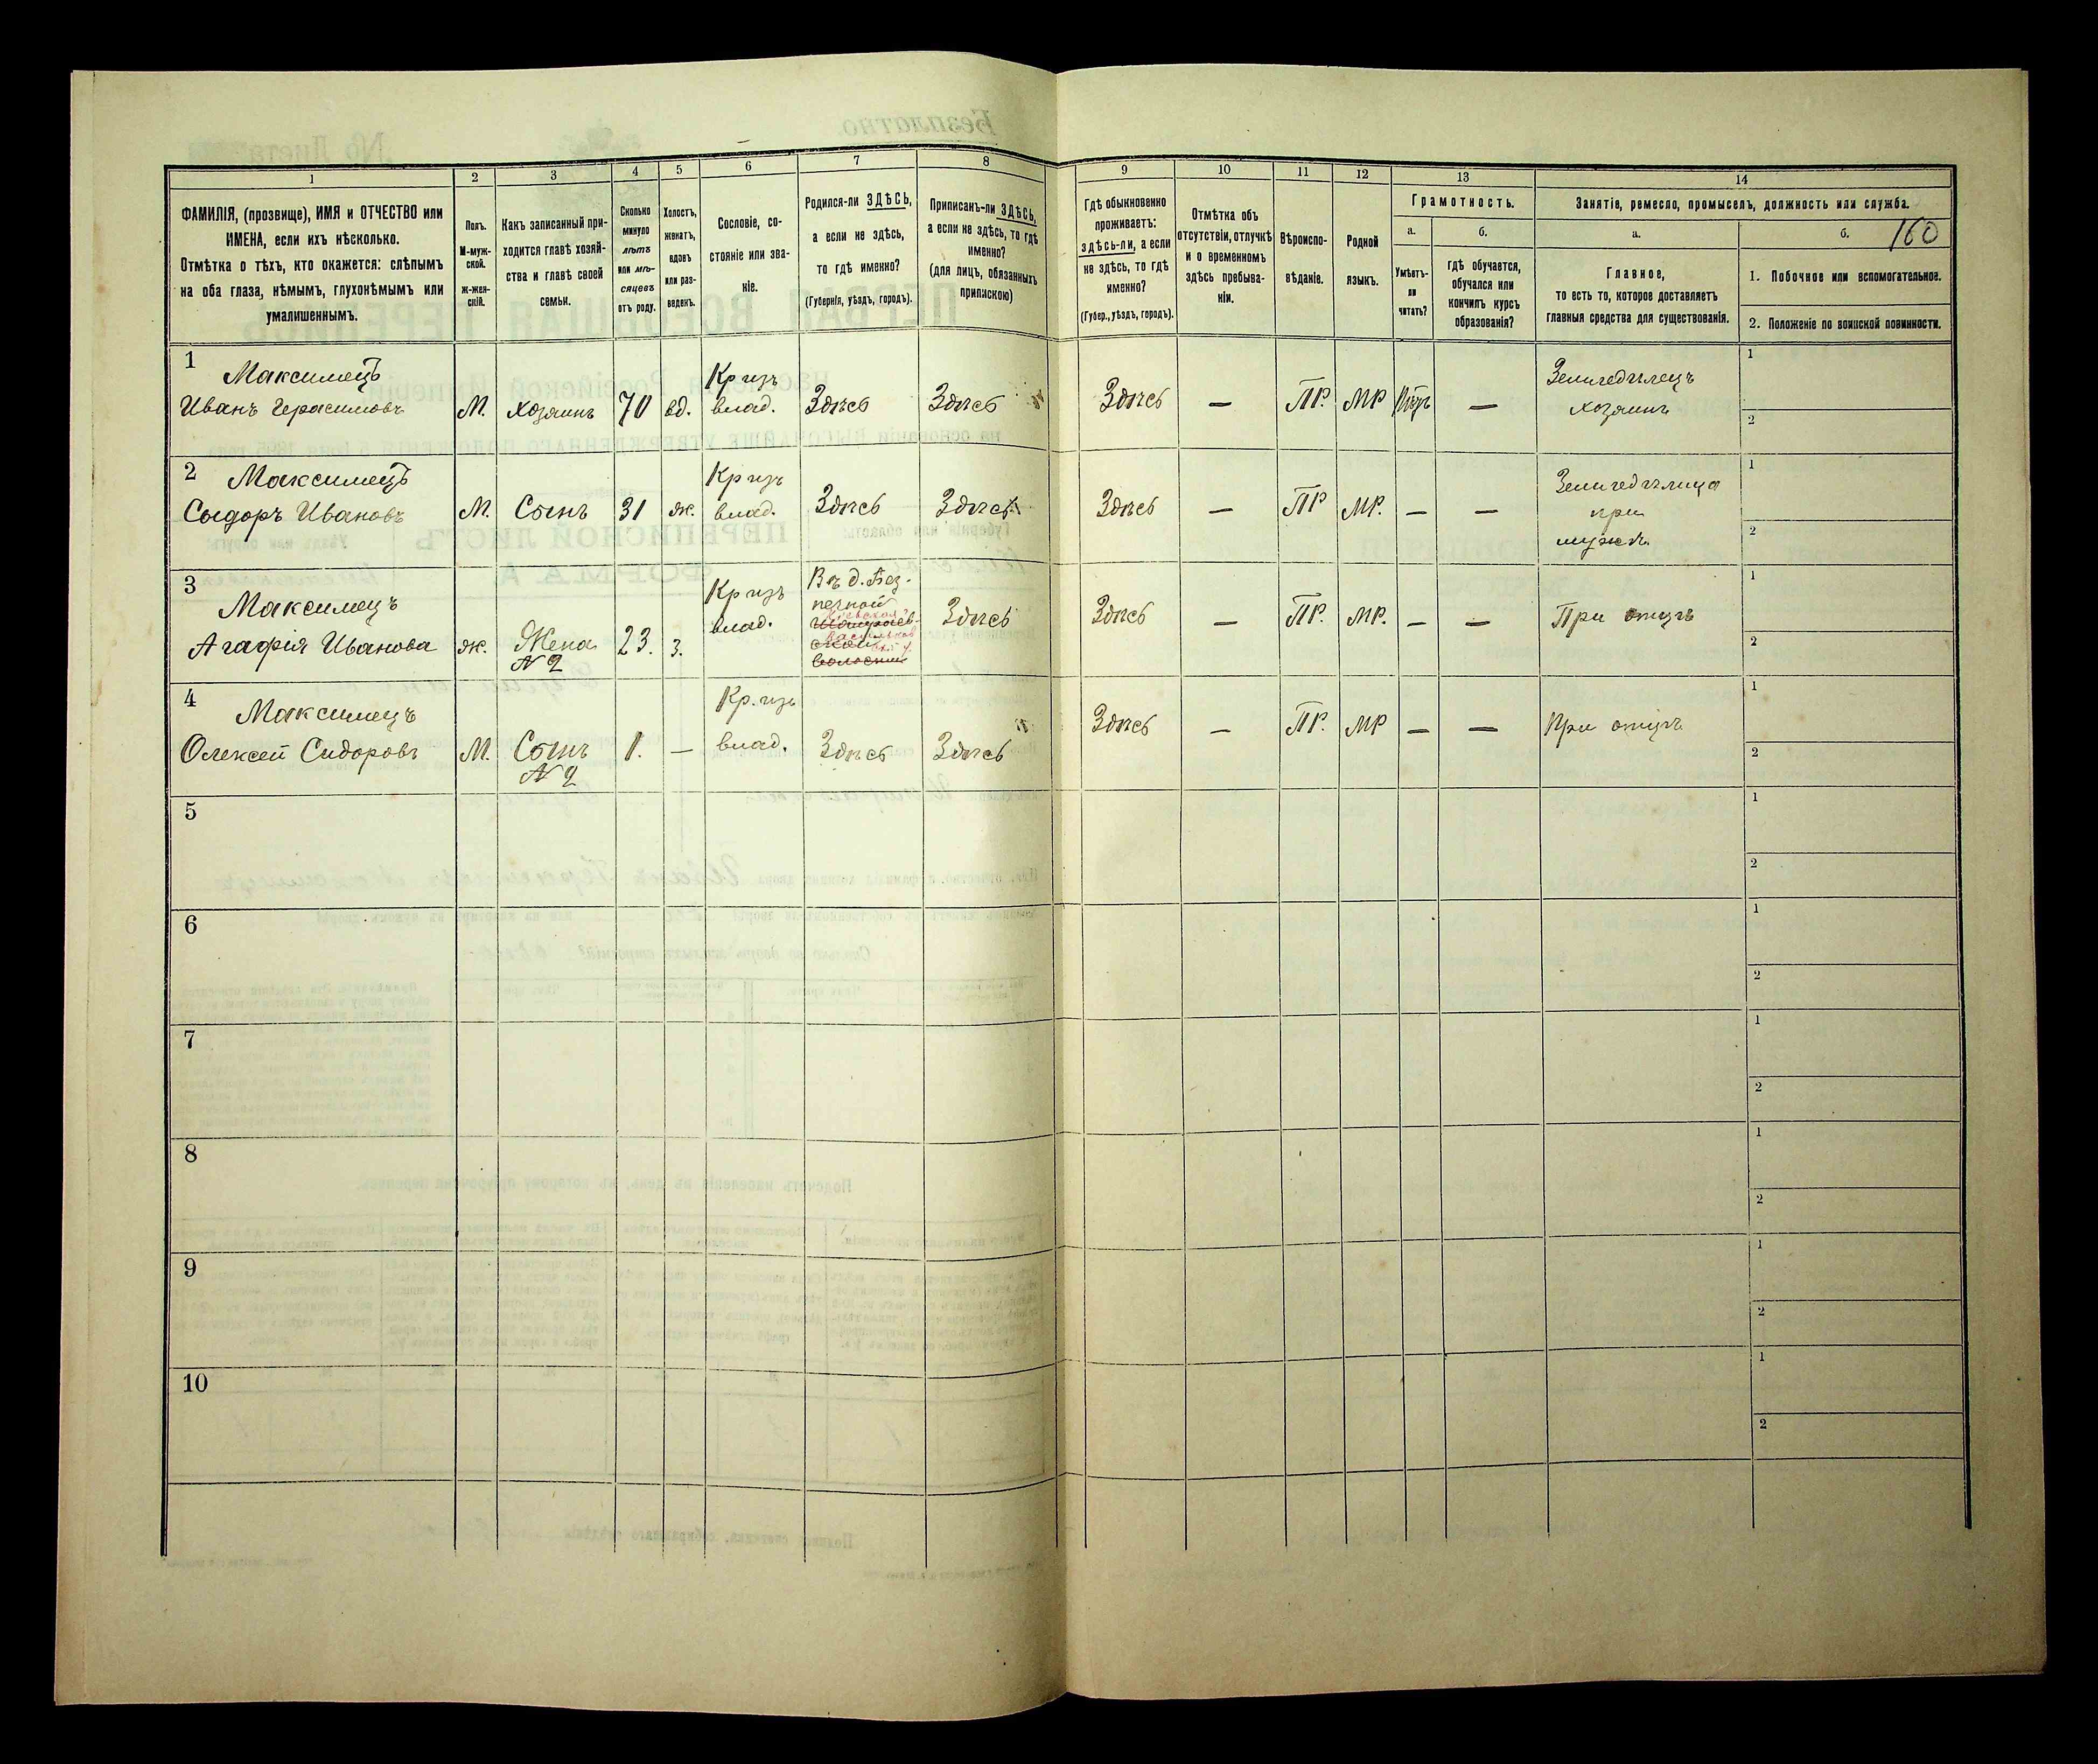 1
2
3
4
5
6
7
8
9
10
11
12
13
14
ФАМИЛІЯ, (прозвище), ИМЯ и ОТЧЕСТВО или
ИМЕНА, если ихъ нѣсколько.
Отмѣтка о тѣхъ, кто окажется: слѣпымъ
на оба глаза, нѣмымъ, глухонѣмымъ или
умалишеннымъ.
Полъ.
М-муж-
ской.
ж-жен-
скій.
Какъ записанный при-
ходится главѣ хозяй-
ства и главѣ своей
семьи.
Сколько
минуло
лѣтъ
или мѣ-
сяцевъ
отъ роду.
Холостъ,
женатъ,
вдовъ
или раз-
веденъ.
Сословіе, со-
стояніе или зва-
ніе.
Родился-ли ЗДѢСЬ,
а если не здѣсь,
то гдѣ именно?
(Губернія, уѣздъ, городъ).
Приписанъ-ли ЗДѢСЬ,
а если не здѣсь, то гдѣ
именно?
(для лицъ, обязанныхъ
припискою)
Гдѣ обыкновенно
проживаетъ:
здѣсь-ли, а если
не здѣсь, то гдѣ
именно?
(Губер., уѣздъ, городъ).
Отмѣтка объ
отсутствіи, отлучкѣ
и о временномъ
здѣсь пребыва-
ніи.
Вѣроиспо-
вѣданіе.
Родной
языкъ.
Грамотность.
а.
Умѣетъ-
ли
читать?
б.
гдѣ обучается,
обучался или
кончилъ курсъ
образованія?
Занятіе, ремесло, промыселъ, должность или служба.
а.
Главное,
то есть то, которое доставляетъ
главныя средства для существованія.
б.
160
1. Побочное или вспомогательное.
2. Положеніе по воинской повинности.
1
Максимецъ
Иванъ Герасимовъ
М.
хозяинъ
70
вд.
Кр изъ
влад.
Здѣсь
Здѣсь
Здѣсь
—
ПР.
МР
—
Земледѣлецъ
хозяинъ
1
2
2
Максимецъ
Сыдоръ Ивановъ
М.
Сынъ
31
ж.
Кр изъ
влад.
Здѣсь
Здѣсь
Здѣсь
—
ПР
МР.
—
—
при
мужѣ
1
2
3
Максимецъ
Агафія Иванова
ж.
Жена
N 2
23.
з.
Кр изъ
влад.
Въ д. Без-
печной
волости
Здѣсь
Здѣсь
—
ПР.
МР.
—
—
При отцѣ
1
2
4
Максимецъ
Олексей Сидоровъ
М.
Сынъ
N 2
1.
—
Кр. изъ
влад.
Здѣсь
Здѣсь
Здѣсь
—
ПР.
МР
—
—
При отцѣ
1
2
5
1
2
6
1
2
7
1
2
8
1
2
9
1
2
10
1
2